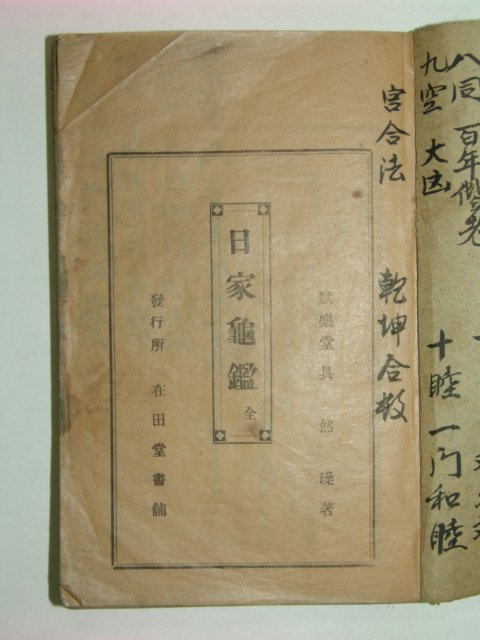 八同 百年偕老
九空 大凶
十睦 一門和睦
宮合法 乾坤合数
默樂堂具然璪著
日家龜鑑 全
發行所 在田堂書舖